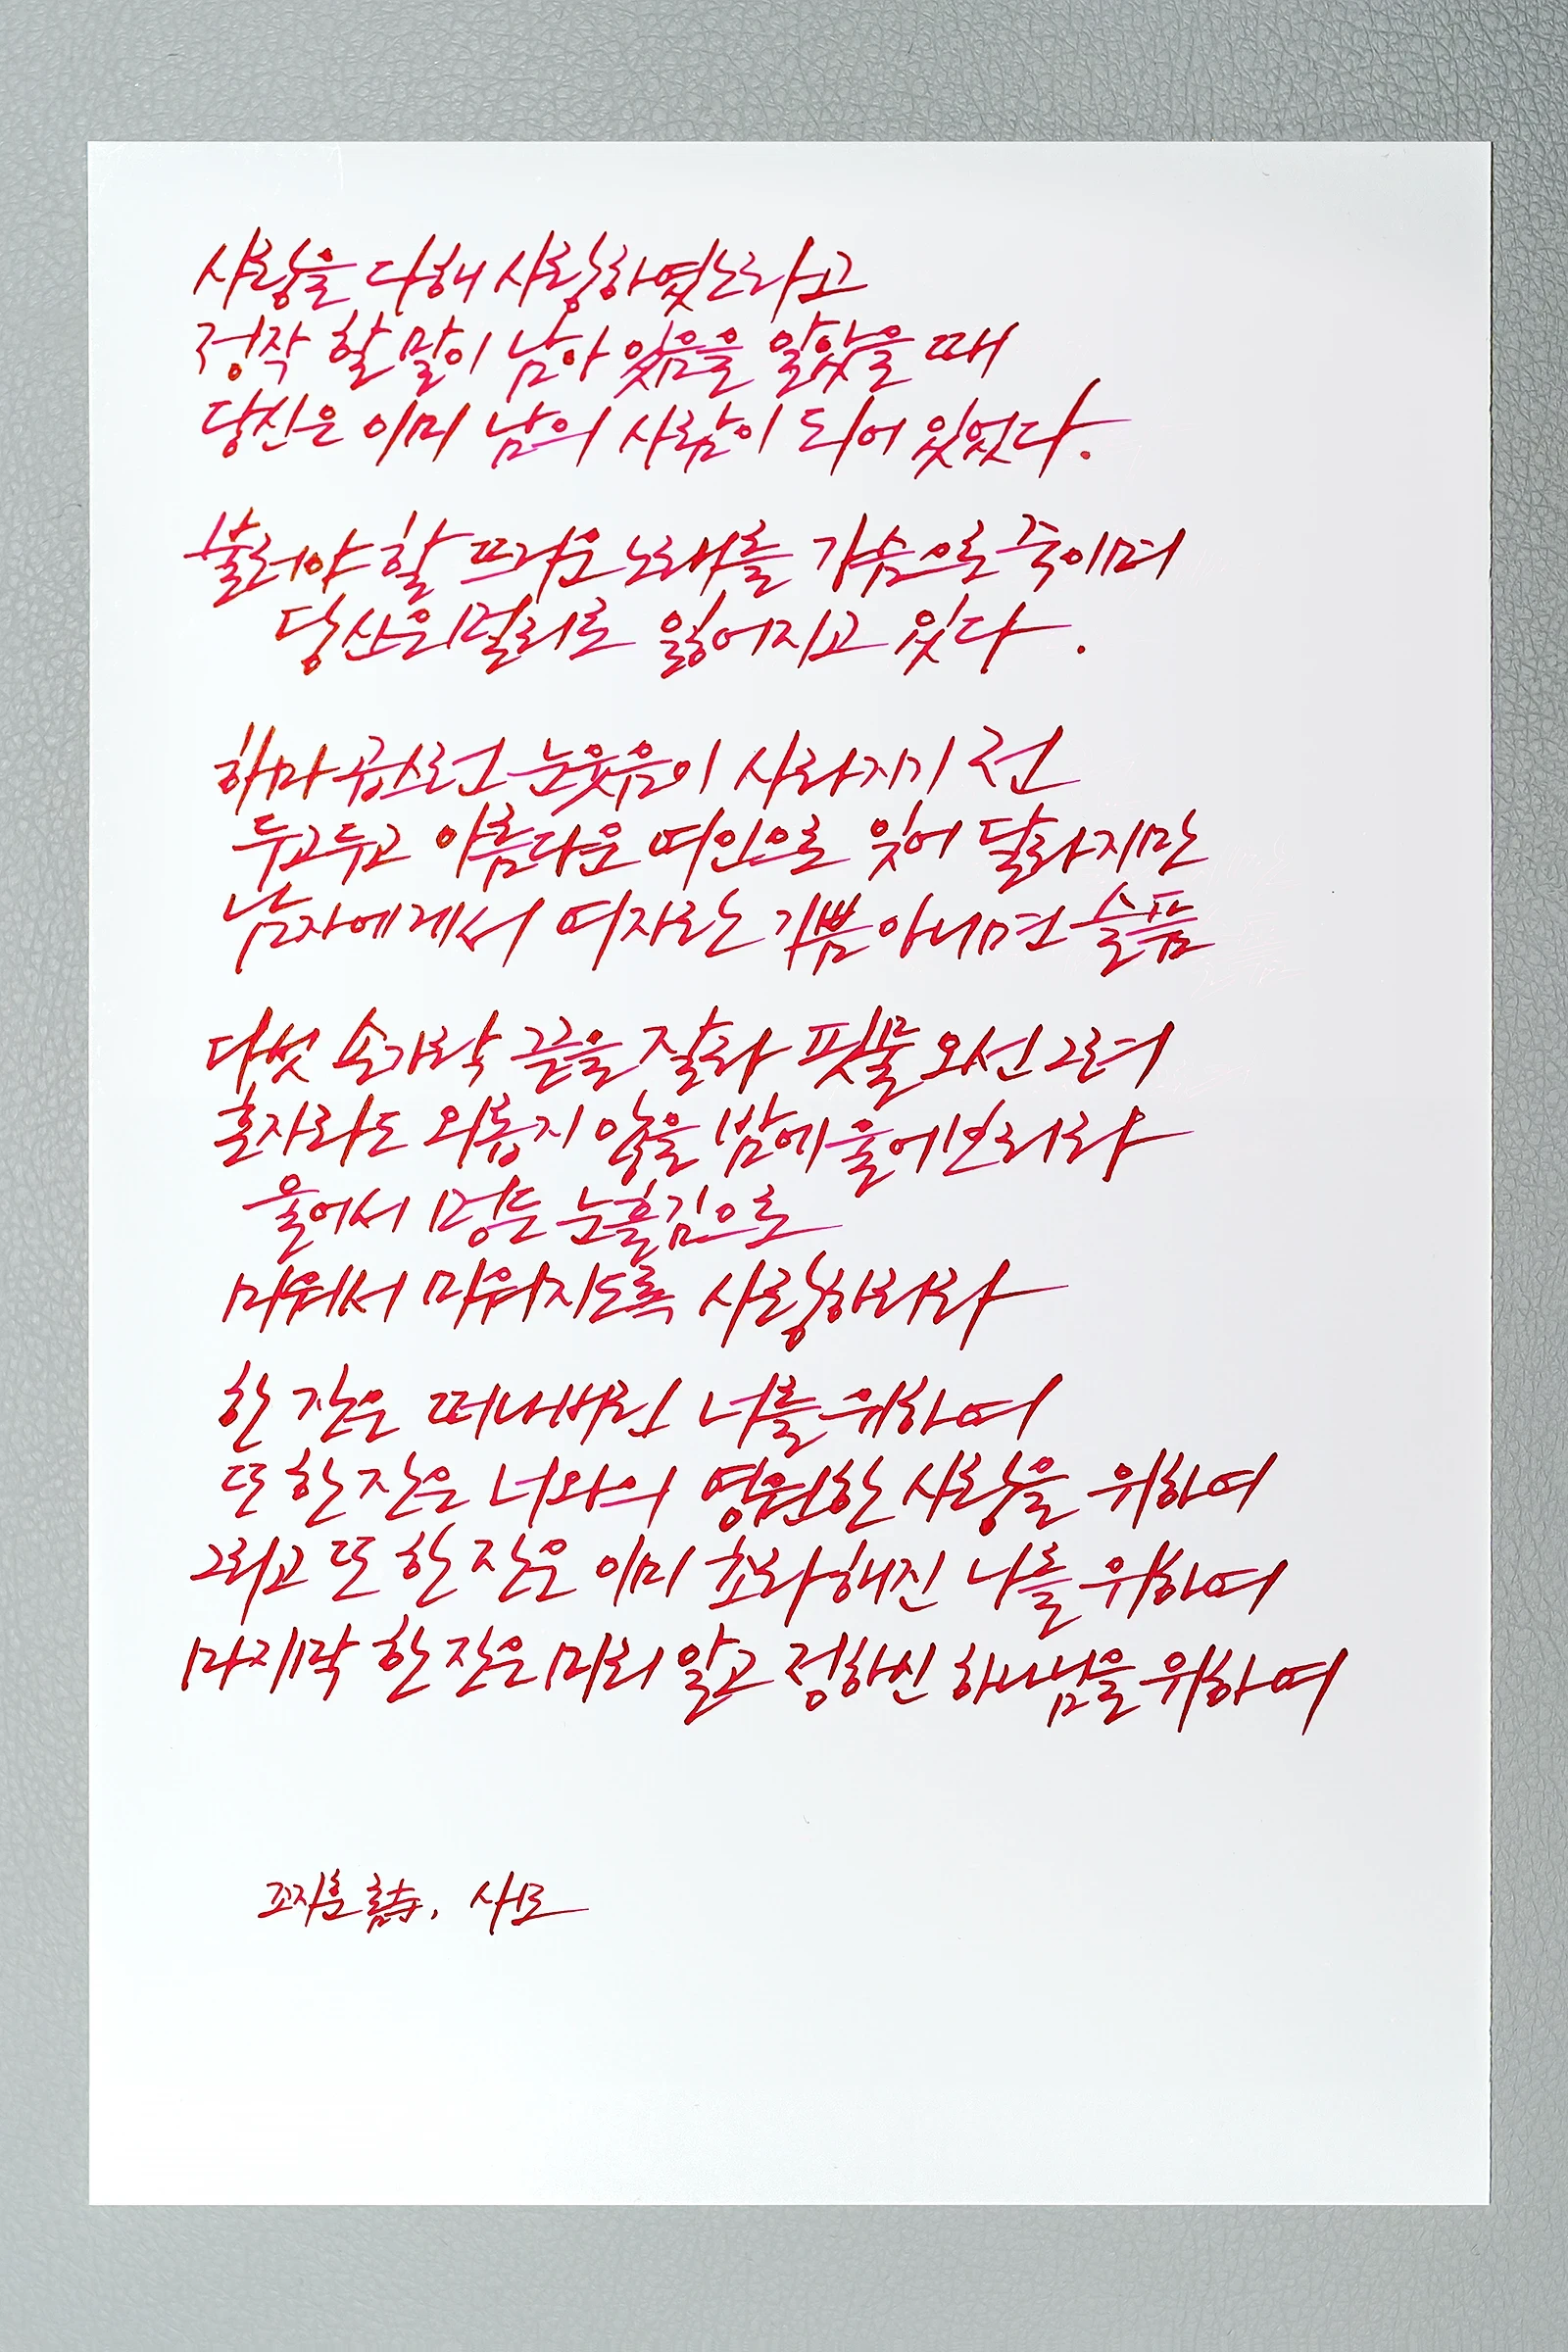 사랑을 다해 사랑하였노라고
정작 할 말이 남아 있음을 알았을 때
당신은 이미 남의 사람이 되어 있었다.
불러야 할 뜨거운 노래를 가슴으로 죽이며
당신은 멀리로 잃어지고 있다.
하마 곱스런 눈웃음이 사라지기 전
두고두고 아름다운 여인으로 잊어 달라지만
남자에게서 여자란 기쁨 아니면 슬픔
다섯 손가락 끝을 잘라 핏물 오선 그려
혼자라도 외롭지 않을 밤에 울어보리라
울어서 멍든 눈흘김으로
미워서 미워지도록 사랑하리라
한 잔은 떠나버린 너를 위하여
또 한 잔은 너와의 영원한 사랑을 위하여
그리고 또 한 잔은 이미 초라해진 나를 위하여
마지막 한 잔은 미리 알고 정하신 하나님을 위하여
조지훈 詩, 사모